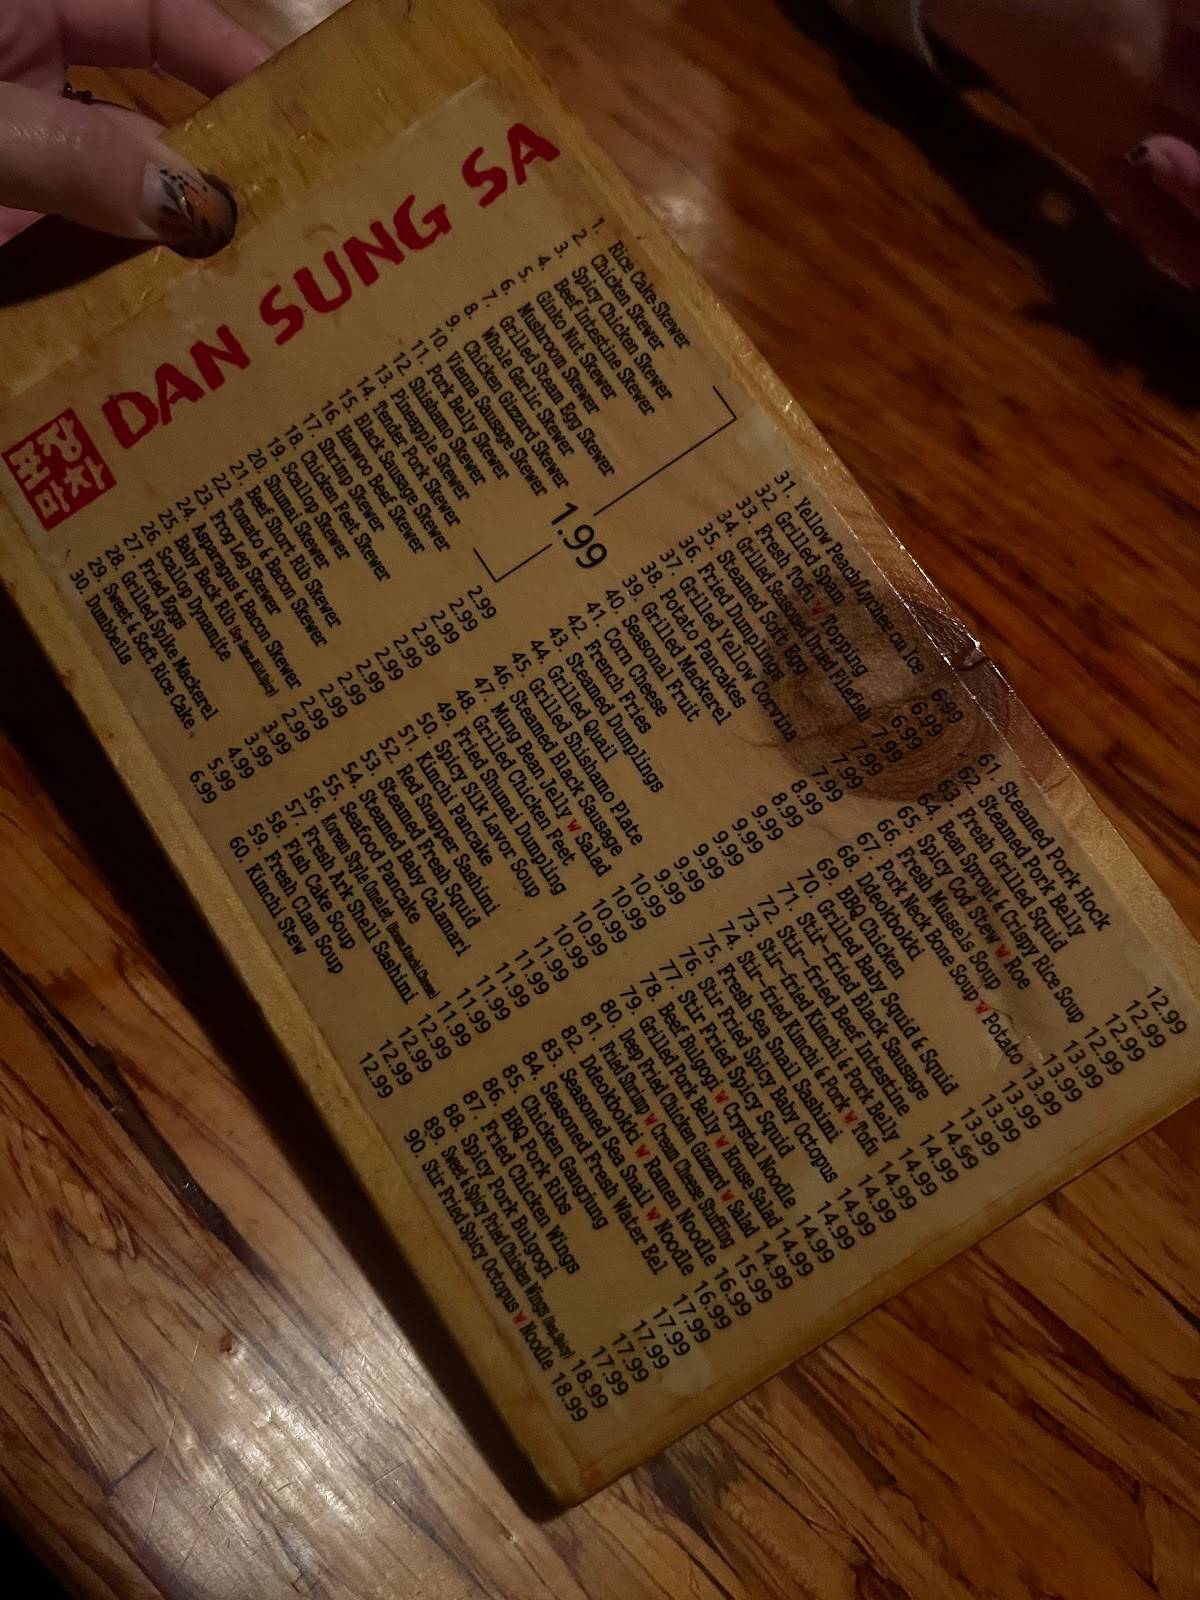 단성사
DAN SUNG SA
1. Rice Cake Skewer
2. Chicken Skewer
3. Spicy Chicken Skewer
4. Beef Intestine Skewer
5. Ginko Nut Skewer
6. Mushroom Skewer
7. Grilled Steam Egg Skewer
8. Whole Garlic Skewer
9. Chicken Gizzard Skewer
10. Vienna Sausage Skewer
11. Pork Belly Skewer
12. Shishamo Skewer
13. Pineapple Skewer
14. Tender Pork Skewer
15. Black Sausage Skewer
1.99
16. Hanwoo Beef Skewer 2.99
17. Shrimp Skewer 2.99
18. Chicken Feet Skewer 2.99
19. Scallop Skewer 2.99
20. Shumai Skewer 2.99
21. Beef Short Rib Skewer 2.99
22. Tomato & Bacon Skewer 2.99
23. Frog Leg Skewer 2.99
24. Asparagus & Bacon Skewer 2.99
25. Baby Back Rib 2.99
26. Scallop Dynamite 3.99
27. Fried Eggs 3.99
28. Grilled Spike Mackerel 4.99
29. Sweet & Soft Rice Cake 5.99
30. Dumbbells 6.99
31. Yellow Peach/Lychee on Ice 6.99
32. Grilled Spam 6.99
33. Fresh Tofu w Topping 6.99
34. Grilled Seasoned Dried Filefish 7.99
35. Steamed Soft Egg 7.99
36. Fried Dumplings 7.99
37. Grilled Yellow Corvina 7.99
38. Potato Pancakes 8.99
39. Grilled Mackerel 8.99
40. Seasonal Fruit 9.99
41. Corn Cheese 9.99
42. French Fries 9.99
43. Steamed Dumplings 9.99
44. Grilled Quail 9.99
45. Grilled Shishamo Plate 9.99
46. Steamed Black Sausage 10.99
47. Mung Bean Jelly w Salad 10.99
48. Grilled Chicken Feet 10.99
49. Fried Shumai Dumpling 10.99
50. Spicy Silk Lavor Soup 10.99
51. Kimchi Pancake 11.99
52. Red Snapper Sashimi 11.99
53. Steamed Fresh Squid 11.99
54. Steamed Baby Calamari 11.99
55. Seafood Pancake 11.99
56. Korean Style Omelet (Cheese, Kimchi Cheese) 11.99
57. Fresh Ark Shell Sashimi 12.99
58. Fish Cake Soup 12.99
59. Fresh Clam Soup 12.99
60. Kimchi Stew 12.99
61. Steamed Pork Hock 12.99
62. Steamed Pork Belly 12.99
63. Fresh Grilled Squid 12.99
64. Bean Sprout & Crispy Rice Soup 13.99
65. Spicy Cod Stew w Roe 13.99
66. Fresh Mussels Soup 13.99
67. Pork Neck Bone Soup w Potato 13.99
68. Ddeokbokki 13.99
69. BBQ Chicken 14.99
70. Grilled Baby Squid & Squid 14.99
71. Stir-fried Black Sausage 14.99
72. Stir-fried Beef Intestine 14.99
73. Stir-fried Kimchi & Pork Belly 14.99
74. Stir-fried Kimchi & Pork w Tofu 14.99
75. Fresh Sea Snail Sashimi 14.99
76. Stir Fried Spicy Baby Octopus 14.99
77. Stir Fried Spicy Squid 14.99
78. Beef Bulgogi w Crystal Noodle 14.99
79. Grilled Pork Belly w House Salad 14.99
80. Deep Fried Chicken Gizzard w Salad 14.99
81. Fried Shrimp w Cream Cheese Stuffing 14.99
82. Ddeokbokki w Ramen Noodle 15.99
83. Seasoned Sea Snail w Noodle 16.99
84. Seasoned Fresh Water Eel 16.99
85. Chicken Gangjung 17.99
86. BBQ Pork Ribs 17.99
87. Fried Chicken Wings 17.99
88. Spicy Pork Bulgogi 17.99
89. Sweet & Spicy Fried Chicken Wings (Reg, Spicy) 18.99
90. Stir Fried Spicy Octopus w Noodle 18.99